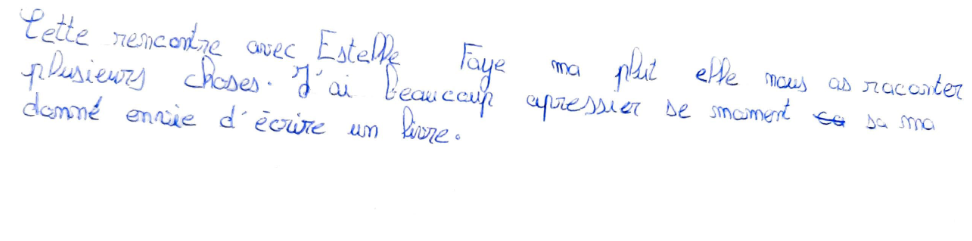 Cette rencontre avec Estelle Faye ma plut elle nous as raconter
plusieurs choses. J'ai beaucoup apressier se moment sa ma
donné envie d'écrire un livre.